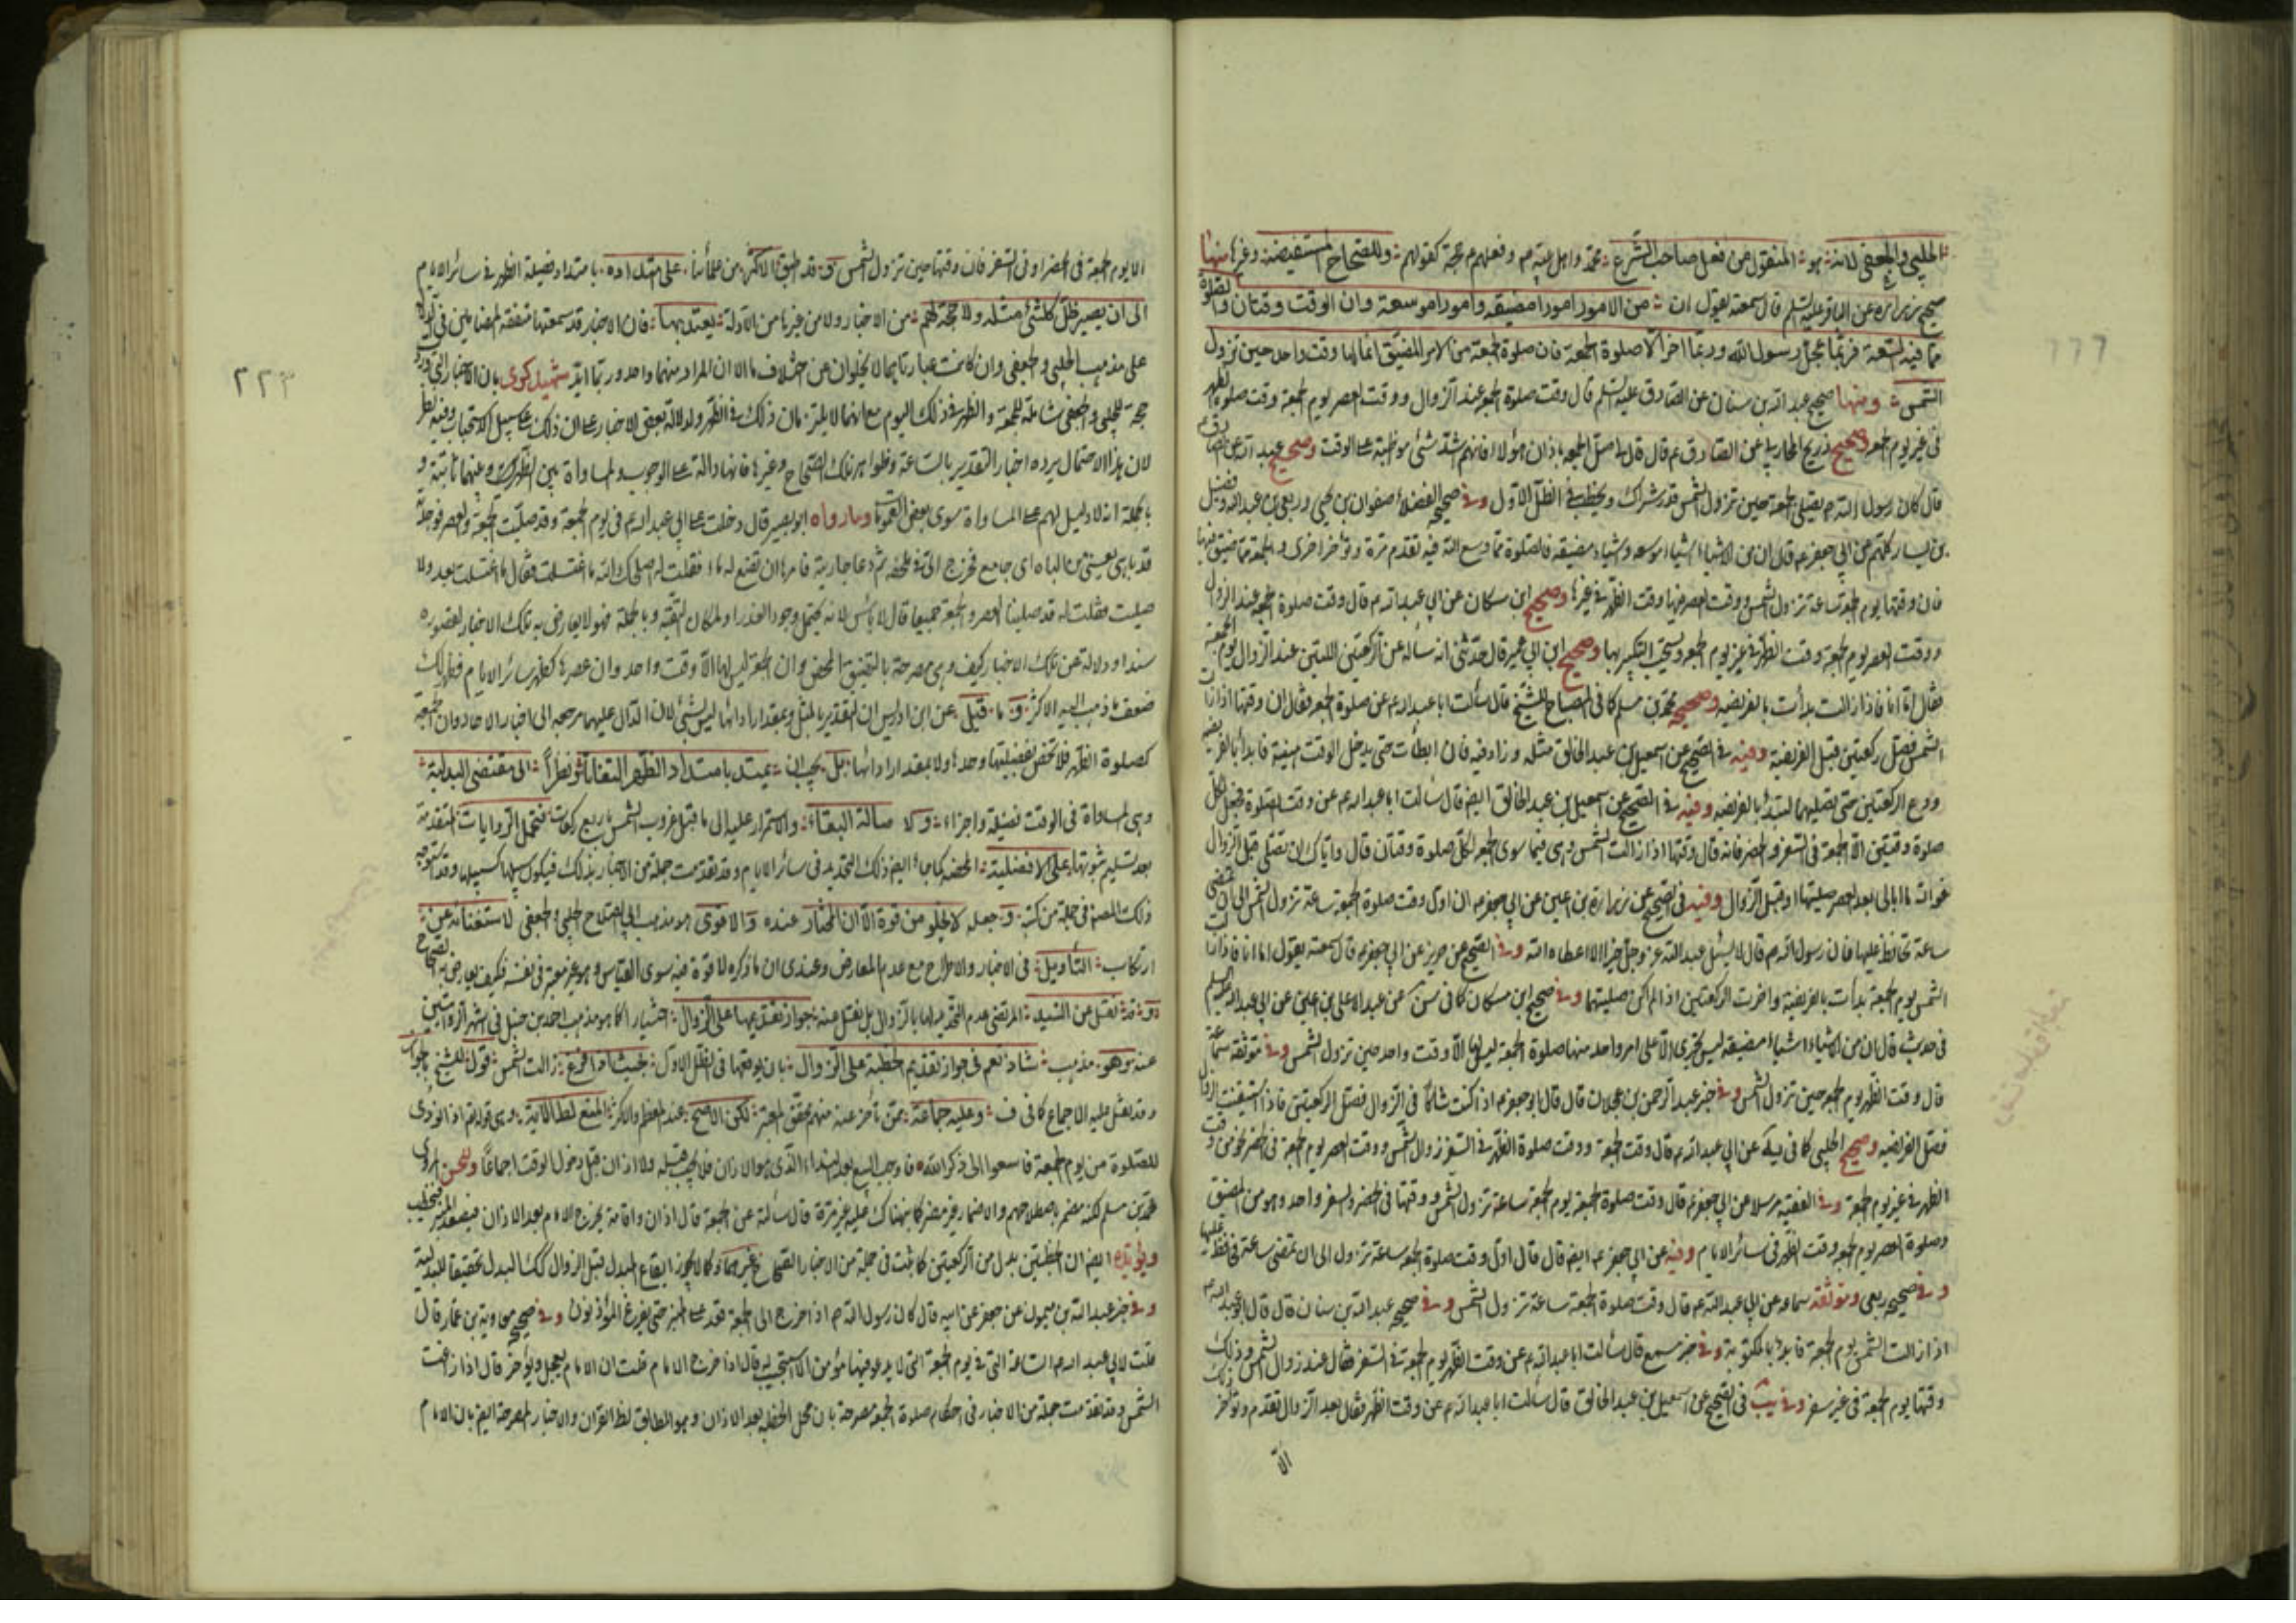 الحلبي والجعفي لانه هو المنقول من فعل صاحب الشرع محمد واهل بيته م وفعلهم م حجة كقولهم وللصحاح المستفيضة وغيرها منها
صحيح زرارة عن الباقر عليه السلم قال سمعته يقول ان من الامور امورا مضيقه وامورا موسعة وان الوقت وقتان والصلوة
مما فيه السعة فربما عجل رسول الله وربما اخر الا صلوة الجمعة فان صلوة الجمعة من الامر المضيق انما لها وقت واحد حين تزول
الشمس ومنها صحيح عبد الله بن سنان عن الصادق عليه السلم قال وقت صلوة الجمعة عند الزوال ووقت العصر يوم الجمعة وقت صلوة الظهر
في غير يوم الجمعة وصحيح ذريح المحاربي عن الصادق م قال قال صل الجمعة باذان هؤلاء فانهم اشد شئ مواظبة على الوقت وصحيح عبد الله عن الصادق م
قال كان رسول الله م يصلي الجمعة حين تزول الشمس قدر شراك ويخطب في الظل الاول وفي صحيح الفضلاء صفوان بن يحيى وربعي بن عبد الله وفضيل
بن يسار كلهم عن ابي جعفر م قال ان من الاشياء اشياء موسعه واشياء مضيقه فالصلوة مما وسع الله فيه تقدم مرة وتؤخر اخرى والجمعة مما ضيق فيها
فان وقتها يوم الجمعة ساعة تزول الشمس ووقت العصر فيها وقت الظهر في غيرها وصحيح ابن مسكان عن ابي عبد الله م قال وقت صلوة الجمعة عند الزوال
ووقت العصر يوم الجمعة وقت الظهر في غير يوم الجمعة ويستحب التكبير بها وصحيح ابن ابي عمير قال حدثني انه سأله عن الركعتين اللتين عند الزوال يوم الجمعة
فقال اما انا فاذا زالت بدأت بالفريضه وصحيحه محمد بن مسلم كما في المصباح للشيخ قال سألت ابا عبد الله م عن صلوة الجمعة فقال ان وقتها اذا زالت
الشمس فصل ركعتين قبل الفريضة وفيه في الصحيح عن اسمعيل بن عبد الخالق مثله وزاد فيه فان ابطأت حتى يدخل الوقت هنيئة فابدأ بالفريضه
ودع الركعتين حتى تصليهما بعد الفريضه وفيه في الصحيح عن اسمعيل بن عبد الخالق ايضا قال سألت ابا عبد الله م عن وقت الصلوة فجعل لكل
صلوة وقتين الا الجمعة في السفر والحضر فانه قال وقتها اذا زالت الشمس وهي فيما سوى الجمعة لكل صلوة وقتان قال واياك ان تصلي قبل الزوال
فوالله ما ابالي بعد العصر صليتها او قبل الزوال وفيه في الصحيح عن زرارة بن اعين عن ابي جعفر م ان اول وقت صلوة الجمعة ساعة تزول الشمس الى ان تمضي
ساعة تحافظ عليها فان رسول الله م قال لا يسئل عبد الله عز وجل خيرا الا اعطاه الله وفي الصحيح عن حريز عن ابي جعفر م قال سمعته يقول اما انا فاذا زالت
الشمس يوم الجمعة بدأت بالفريضة واخرت الركعتين اذا لم اكن صليتهما وفي صحيح ابن مسكان كما في سن عن عبد الاعلى بن اعين عن ابي عبد الله عليه السلم
في حديث قال ان من الاشياء اشياء مضيقه ليس تجري الا على امر واحد منها صلوة الجمعة ليس لها الا وقت واحد حين تزول الشمس وفي موثقة سماعة
قال وقت الظهر يوم الجمعة حين تزول الشمس وفي خبر عبد الرحمن بن عجلان قال قال ابو جعفر م اذا كنت شاكا في الزوال فصل الركعتين فاذا استيقنت الزوال
فصل الفريضه وصحيح الحلبي كما في يه عن ابي عبد الله م قال وقت الجمعة ووقت صلوة الظهر في السفر زوال الشمس ووقت العصر يوم الجمعة في الحضر نحو من وقت
الظهر في غير يوم الجمعة وفي الفقيه مرسلا عن ابي جعفر م قال وقت صلوة الجمعة يوم الجمعة ساعة تزول الشمس ووقتها في الحضر والسفر واحد وهو من المضيق
وصلوة العصر يوم الجمعة وقت الظهر في سائر الايام وفيه عن ابي جعفر م ايضا قال قال اول وقت صلوة الجمعة ساعة تزول الى ان تمضي ساعة فحافظ عليها
وفي صحيحه ربعي وموثقه سماعه عن ابي عبد الله م قال وقت صلوة الجمعة ساعة تزول الشمس وفي صحيحه عبد الله بن سنان قال قال ابو عبد الله م
اذا زالت الشمس يوم الجمعة فابدأ بالمكتوبة وفي خبر سميع قال سألت ابا عبد الله م عن وقت الظهر يوم الجمعة في السفر فقال عند زوال الشمس وذلك
وقتها يوم الجمعة في غير سفر وفي يب في الصحيح عن اسمعيل بن عبد الخالق قال سألت ابا عبد الله م عن وقت الظهر فقال بعد الزوال بقدم ونحو ذلك
الا
٢٢٣
الا يوم الجمعة في الحضر او في السفر فان وقتها حين تزول الشمس و قد اطبق الاكثر من علمائنا على امتداده بامتداد فضيلة الظهر في سائر الايام
الى ان يصير ظل كلشئ مثله ولا حجة لهم من الاخبار ولا من غيرها من الادلة يعتد بها فان الاخبار قد سمعتها متفقه المضامين في الدلالة
على مذهب الحلبي والجعفي وان كانت عباراتهما لا يخلوان عن اختلاف ما الا ان المراد منهما واحد وربما ايد شهيد كوى بان الاخبار التي
حجة للحلبي والجعفي شاملة للجمعة والظهر في ذلك اليوم مع انهما لا يلتزمان ذلك في الظهر ولدلالة بعض الاخبار على ان ذلك على سبيل الاستحباب وفيه نظر
لان هذا الاحتمال يرده اخبار التقدير بالساعة وظواهر تلك الصحاح وغيرها فانها دالة على الوجوب والمساواة بين الظهرين
بالجملة انه لا دليل لهم على المساواة سوى بعض العمومات وما رواه ابو بصير قال دخلت على ابي عبد الله م في يوم الجمعة وقد صليت الجمعة والعصر فوجدته
قد باهى يعني من الباه اى جامع فخرج الي في ملحفة ثم دعا جاريته فامرها ان تضع له ماء فقلت له اصلحك الله ما اغتسلت فقال ما اغتسلت بعد ولا
صليت فقلت له قد صلينا العصر والجمعة جميعا قال لا بأس لانه يحتمل وجود العذر او لمكان التقية وبالجملة فهو لا يعارض به تلك الاخبار لقصوره
سندا ودلالة عن تلك الاخبار كيف وهي مصرحة بالتضيق المحض وان الجمعة ليس لها الا وقت واحد وان عصرها كظهر سائر الايام فظهر لك
ضعف ما ذهب اليه الاكثر و ما قيل عن ابن ادريس ان التقدير بالمثل وبمقدار ادائها ليس بشئ لان الدال عليهما مرجعه الى اخبار الاحاد وان الجمعة
كصلوة الظهر فلا تختص بفضيلتها وحدها ولا بمقدار ادائها بل يجب ان يمتد بامتداد الظهر التفاتا و نظرا الى مقتضى البدلية
وهي المساواة في الوقت فضيلة واجزاء و لا صالة البقاء والاستمرار عليه الى ما قبل غروب الشمس باربع ركعات فتحمل الروايات المتقدمة
بعد تسليم ثبوتها على الافضلية المحضة كما جاء ايضا ذلك التحديد في سائر الايام وقد تقدمت جملة من الاخبار بذلك فيكون سبيلها كسبيلها
ذلك المصنف في جملة من كتبه و جعله لا يخلو من قوة الا ان المختار عنده والاقوى هو مذهب ابي الصلاح الحلبي والجعفي لاستغنائه عن
ارتكاب التأويل في الاخبار والاطراح مع عدم المعارض وعندي ان ما ذكره لا قوة فيه سوى القياس وهو غير حجة في نفسه فكيف يعارض به الصحاح
و قد نقل عن السيد المرتضى عدم التحديد لها بالزوال بل نقل عنه جواز تقديمها على الزوال اختيارا كما هو مذهب احمد بن حنبل في اشهر الروايتين
عنه وهو مذهب شاذ نعم في جواز تقديم الخطبة على الزوال بان يوقعها في الظل الاول بحيث اذا فرغ زالت الشمس قول للشيخ بالجواز
وقد نقل عليه الاجماع كما في ف وعليه جماعة ممن تأخر عنه منهم محقق المعتبر لكن الاصح عند المعظم والاكثر المنع لظاهر الاية وهي قوله تع اذا نودى
للصلوة من يوم الجمعة فاسعوا الى ذكر الله فاوجب السعي بعد النداء الذي هو الاذان فلا يجب قبله ولا اذان قبل دخول الوقت اجماعا وللحسن المروى
محمد بن مسلم لكنه مضمر باصطلاحهم والاضمار غير مضر كما بيناك عليه غير مرة قال سألته عن الجمعة قال اذان واقامة يخرج الامام بعد الاذان فيصعد المنبر فيخطب
ويؤيده ايضا ان الخطبتين بدل من الركعتين كما ثبت في جملة من الاخبار الصحاح غيرهما وكما لا يجوز ايقاع المبدل قبل الزوال كك البدل تحقيقا للبدلية
وفي خبر عبد الله بن ميمون عن جعفر عن ابيه قال كان رسول الله م اذا خرج الى الجمعة قعد على المنبر حتى يفرغ المؤذنون وفي صحيح معاوية بن عمار قال
قلت لابي عبد الله م الساعة التي في يوم الجمعة التي لا يدعو فيها مؤمن الا استجيب له قال اذا خرج الامام قلت ان الامام يعجل ويؤخر قال اذا زاغت
الشمس وقد تقدمت جملة من الاخبار في احكام صلوة الجمعة مصرحة بان محل الخطبة بعد الاذان وهو المطابق لظ القران والاخبار المصرحة ايضا بان الامام